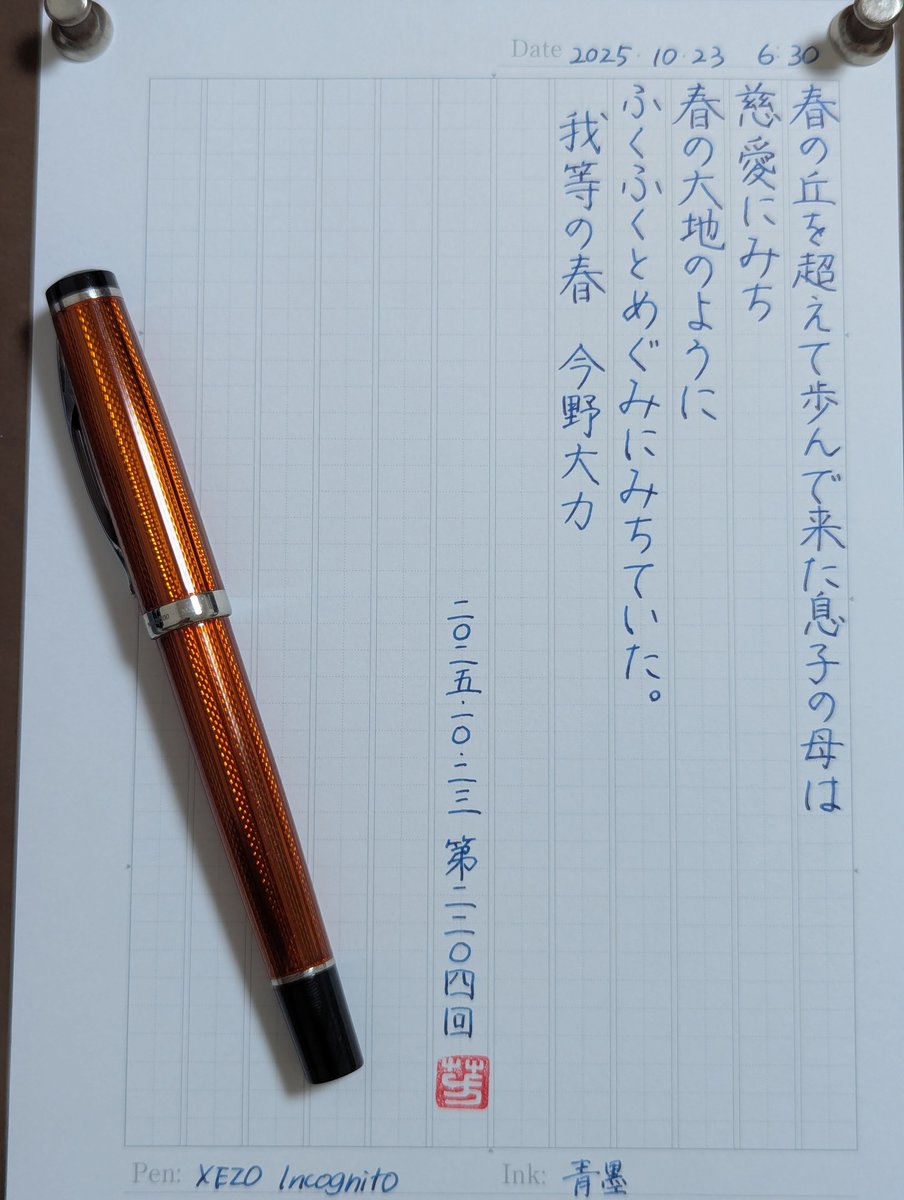 Date 2025.10.23 6:30
春の丘を超えて歩んで来た息子の母は
慈愛にみち
春の大地のように
ふくふくとめぐみにみちていた。
我等の春 今野大力
二〇二五・一〇・二三 第二二〇四回
芳
Pen: XEZO Incognito
Ink: 青墨